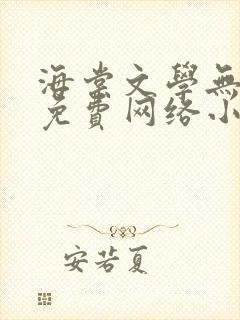 海棠文學無
免費网络小
安若夏